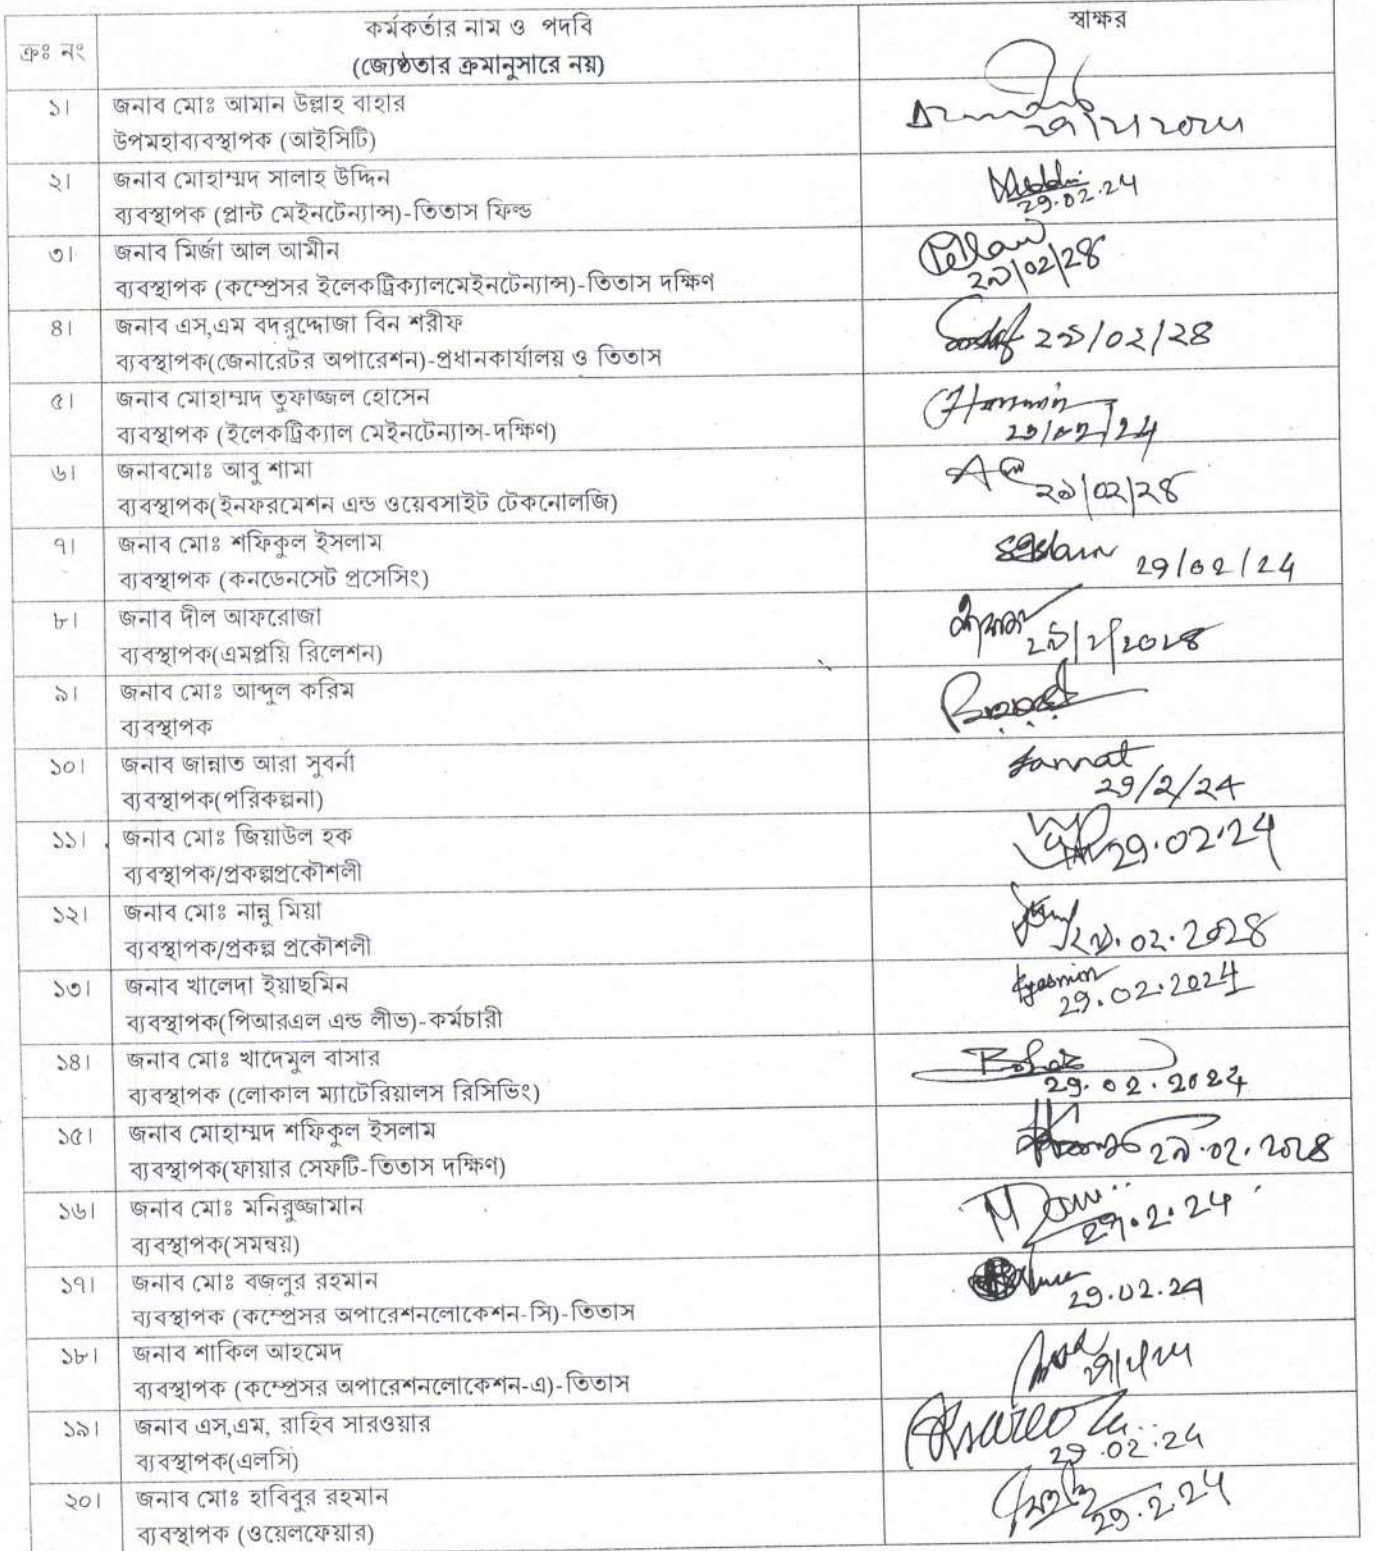 ক্রঃ নং
কর্মকর্তার নাম ও পদবি
(জ্যেষ্ঠতার ক্রমানুসারে নয়)
স্বাক্ষর
১।
জনাব মোঃ আমান উল্লাহ বাহার
উপমহাব্যবস্থাপক (আইসিটি)
২।
জনাব মোহাম্মদ সালাহ উদ্দিন
ব্যবস্থাপক (প্লান্ট মেইনটেন্যান্স)-তিতাস ফিল্ড
29.02.24
৩।
জনাব মির্জা আল আমীন
ব্যবস্থাপক (কম্প্রেসর ইলেকট্রিক্যালমেইনটেন্যান্স)-তিতাস দক্ষিণ
২৯/০২/২৪
৪।
জনাব এস,এম বদরুদ্দোজা বিন শরীফ
ব্যবস্থাপক(জেনারেটর অপারেশন)-প্রধানকার্যালয় ও তিতাস
২৯/০২/২৪
৫।
জনাব মোহাম্মদ তুফাজ্জল হোসেন
ব্যবস্থাপক (ইলেকট্রিক্যাল মেইনটেন্যান্স-দক্ষিণ)
29/02/24
৬।
জনাবমোঃ আবু শামা
ব্যবস্থাপক(ইনফরমেশন এন্ড ওয়েবসাইট টেকনোলজি)
২৯/০২/২৪
৭।
জনাব মোঃ শফিকুল ইসলাম
ব্যবস্থাপক (কনডেনসেট প্রসেসিং)
29/02/24
৮।
জনাব দীল আফরোজা
ব্যবস্থাপক(এমপ্লয়ি রিলেশন)
২৯/২/২০২৪
৯।
জনাব মোঃ আব্দুল করিম
ব্যবস্থাপক
১০।
জনাব জান্নাত আরা সুবর্না
ব্যবস্থাপক(পরিকল্পনা)
Jannat
29/2/24
১১।
জনাব মোঃ জিয়াউল হক
ব্যবস্থাপক/প্রকল্পপ্রকৌশলী
29.02.24
১২।
জনাব মোঃ নান্নু মিয়া
ব্যবস্থাপক/প্রকল্প প্রকৌশলী
২৯.০২.২০২৪
১৩।
জনাব খালেদা ইয়াছমিন
ব্যবস্থাপক(পিআরএল এন্ড লীভ)-কর্মচারী
Kyasmin
29.02.2024
১৪।
জনাব মোঃ খাদেমুল বাসার
ব্যবস্থাপক (লোকাল ম্যাটেরিয়ালস রিসিভিং)
29.02.2024
১৫।
জনাব মোহাম্মদ শফিকুল ইসলাম
ব্যবস্থাপক(ফায়ার সেফটি-তিতাস দক্ষিণ)
২৯.০২.২০২৪
১৬।
জনাব মোঃ মনিরুজ্জামান
ব্যবস্থাপক(সমন্বয়)
29.2.24
১৭।
জনাব মোঃ বজলুর রহমান
ব্যবস্থাপক (কম্প্রেসর অপারেশনলোকেশন-সি)-তিতাস
29.02.24
১৮।
জনাব শাকিল আহমেদ
ব্যবস্থাপক (কম্প্রেসর অপারেশনলোকেশন-এ)-তিতাস
১৯।
জনাব এস,এম, রাহিব সারওয়ার
ব্যবস্থাপক(এলসি)
29.02.24
২০।
জনাব মোঃ হাবিবুর রহমান
ব্যবস্থাপক (ওয়েলফেয়ার)
29.2.24